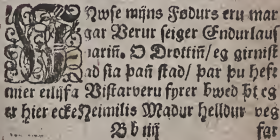 Nwse mijns Fødurs eru mar
gar Verur seiger Endurlaus
narin̄. O Drottin̄/ eg girnist
ad sia pan̄ stad/ par pu hefr
mier eilijfa Vistarveru fyrer bwed þt eg
er hier ecke Neimilis Madur helldur eg
B b iiij